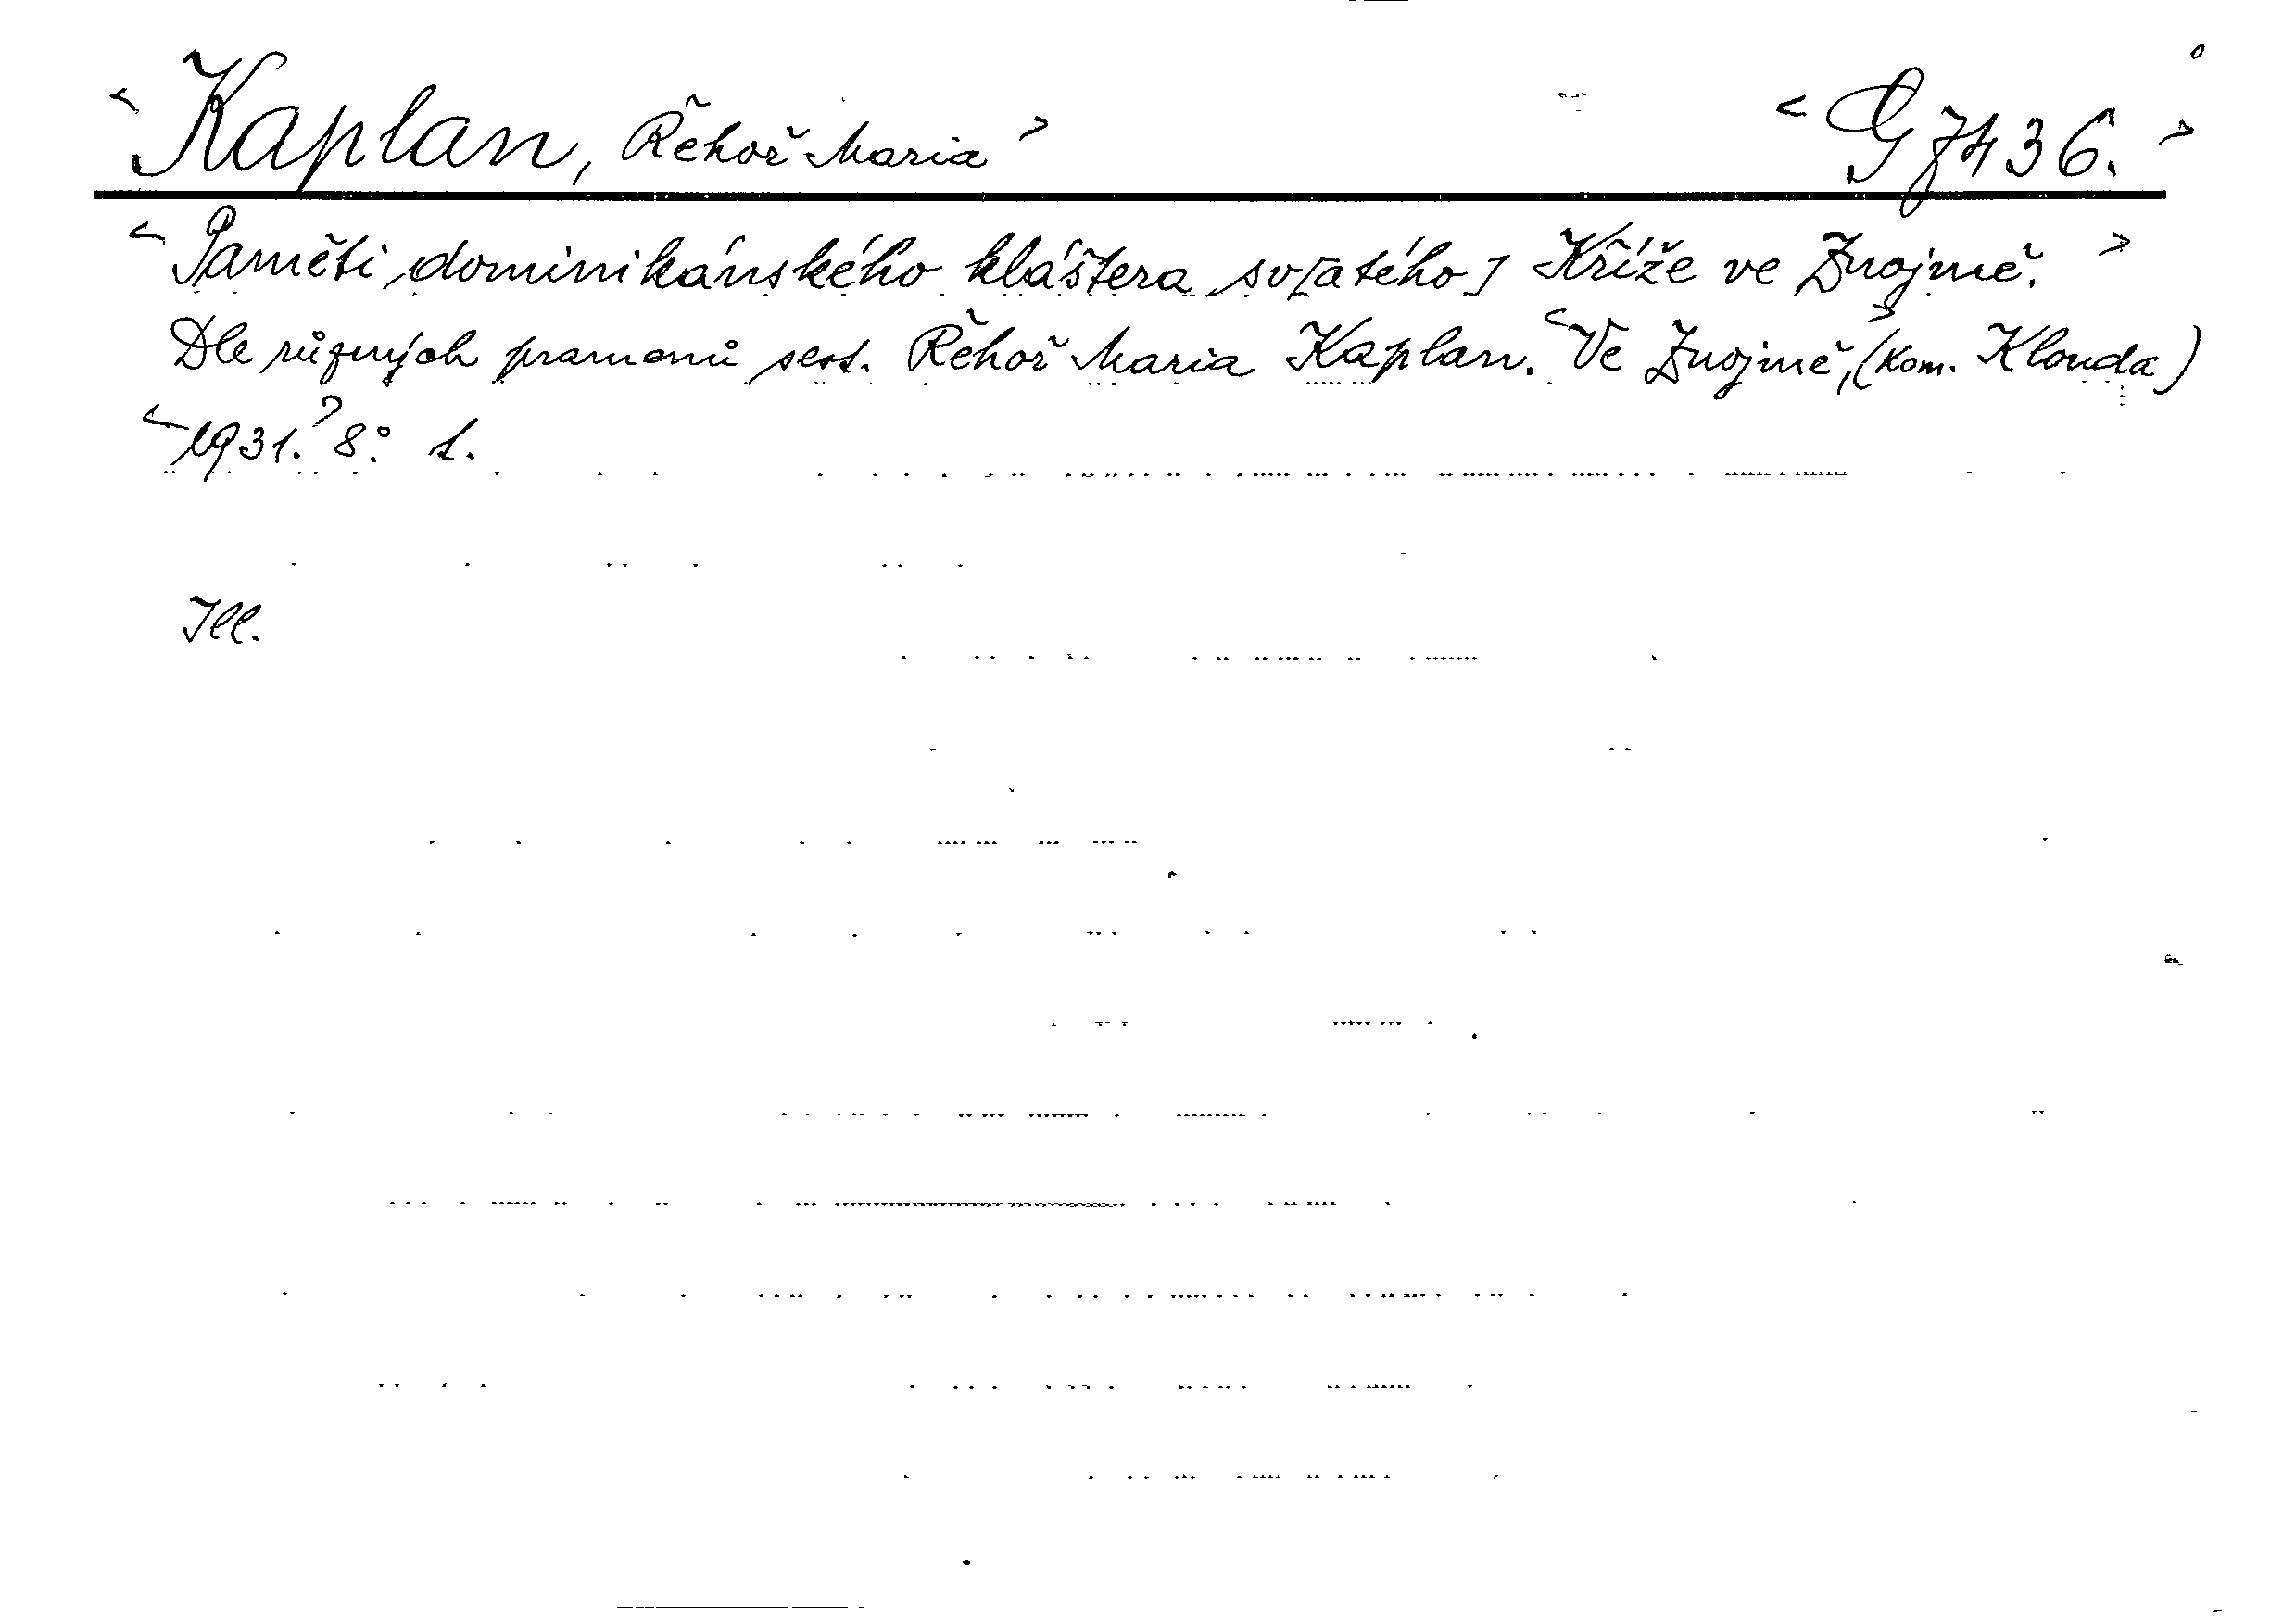 <Kaplan, Řehoř Maria> <G 7436.>
<Paměti dominikánského kláštera sv[atého] Kříže ve Znojmě.>
Dle různých pramenů sest. Řehoř Maria Kaplan. <Ve Znojmě,> (Kom. Klouda)
<1931.> 8° L.
Ill.